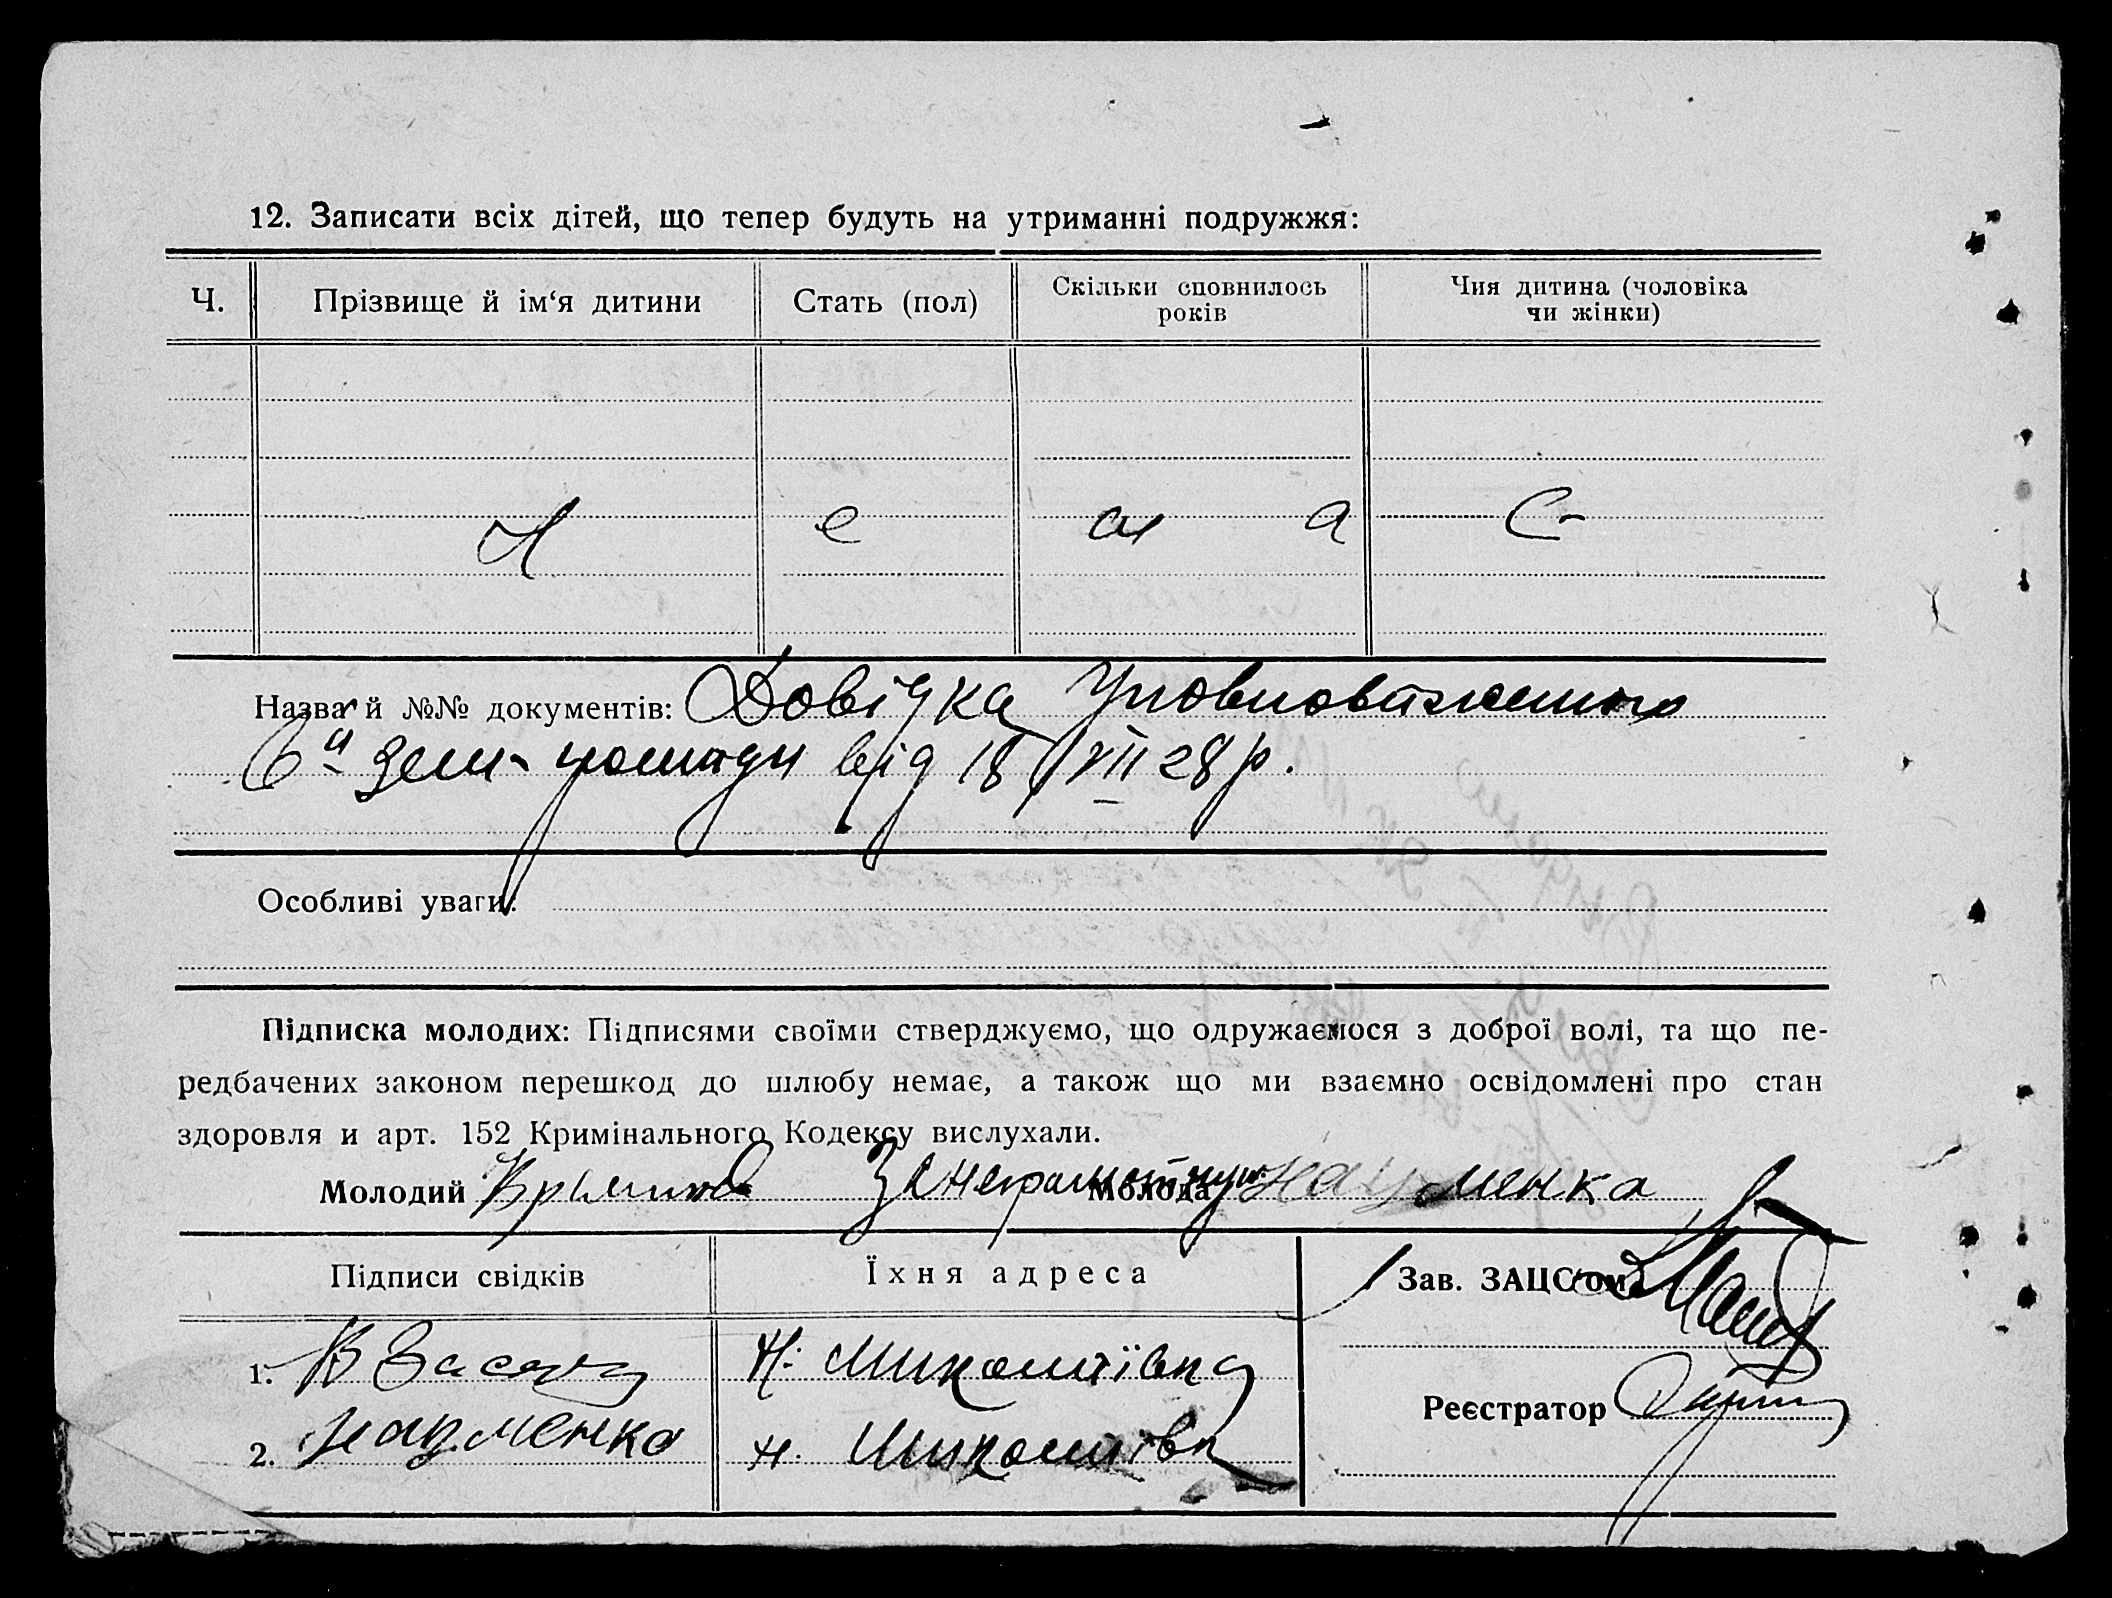 12. Записати всіх дітей, що тепер будуть на утриманні подружжя:
Ч. Прізвище й ім‘я дитини Стать (пол) Скільки сповнилось років Чия дитина (чоловіка чи жінки)
Н е м а є
Назва й №№ документів: Довідка Уповноваженого
6й зем. громади від 18/XII 28 р.
Особливі уваги:
Підписка молодих: Підписями своїми стверджуємо, що одружаємося з доброї волі, та що пе-
редбачених законом перешкод до шлюбу немає, а також що ми взаємно освідомлені про стан
здоровля и арт. 152 Кримінального Кодексу вислухали.
Молодий За неграмотную Молода Науменка
Підписи свідків Їхня адреса Зав. ЗАЦС‘ом
1. Н. Миколаївка
Реєстратор
2. Науменка Н. Миколаївка